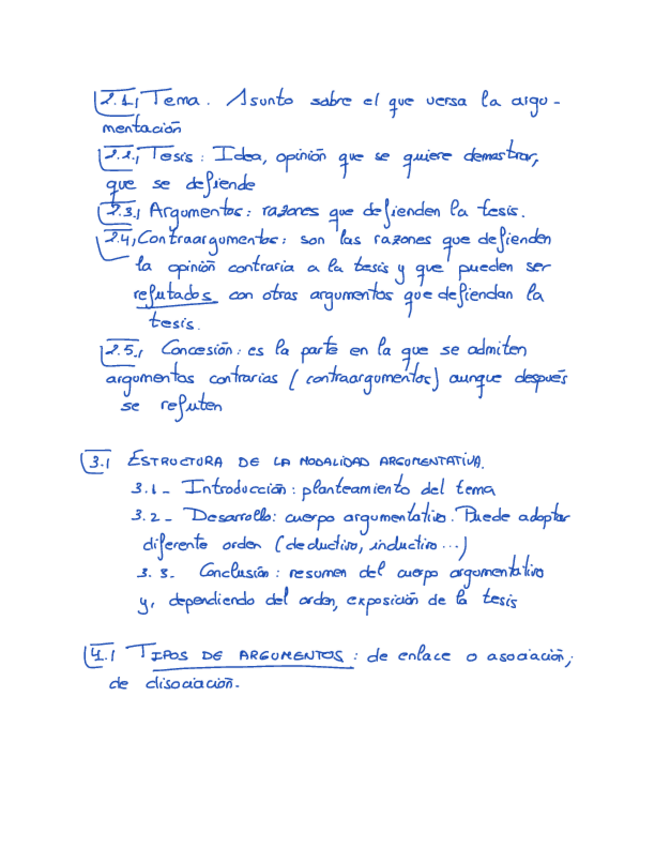 2.1, Tema. Asunto sobre el que versa la argu-
mentación
2.2, Tesis: Idea, opinión que se quiere demostrar,
que se defiende
2.3, Argumentos: razones que defienden la tesis.
2.4, Contraargumentos: son las razones que defienden
la opinión contraria a la tesis y que pueden ser
refutados con otras argumentos que defiendan la
tesis.
2.5, Concesión: es la parte en la que se admiten
argumentos contrarias (contraargumentos) aunque después
se refuten
3.1 ESTRUCTURA DE LA MODALIDAD ARGUMENTATIVA.
3.1- Introducción: planteamiento del tema
3.2- Desarrollo: cuerpo argumentativo. Puede adoptar
diferente orden (deductivo, inductivo...)
3.3- Conclusión: resumen del cuerpo argumentativo
y, dependiendo del orden, exposición de la tesis
4.1 TIPOS DE ARGUMENTOS: de enlace o asociación;
de disociación.